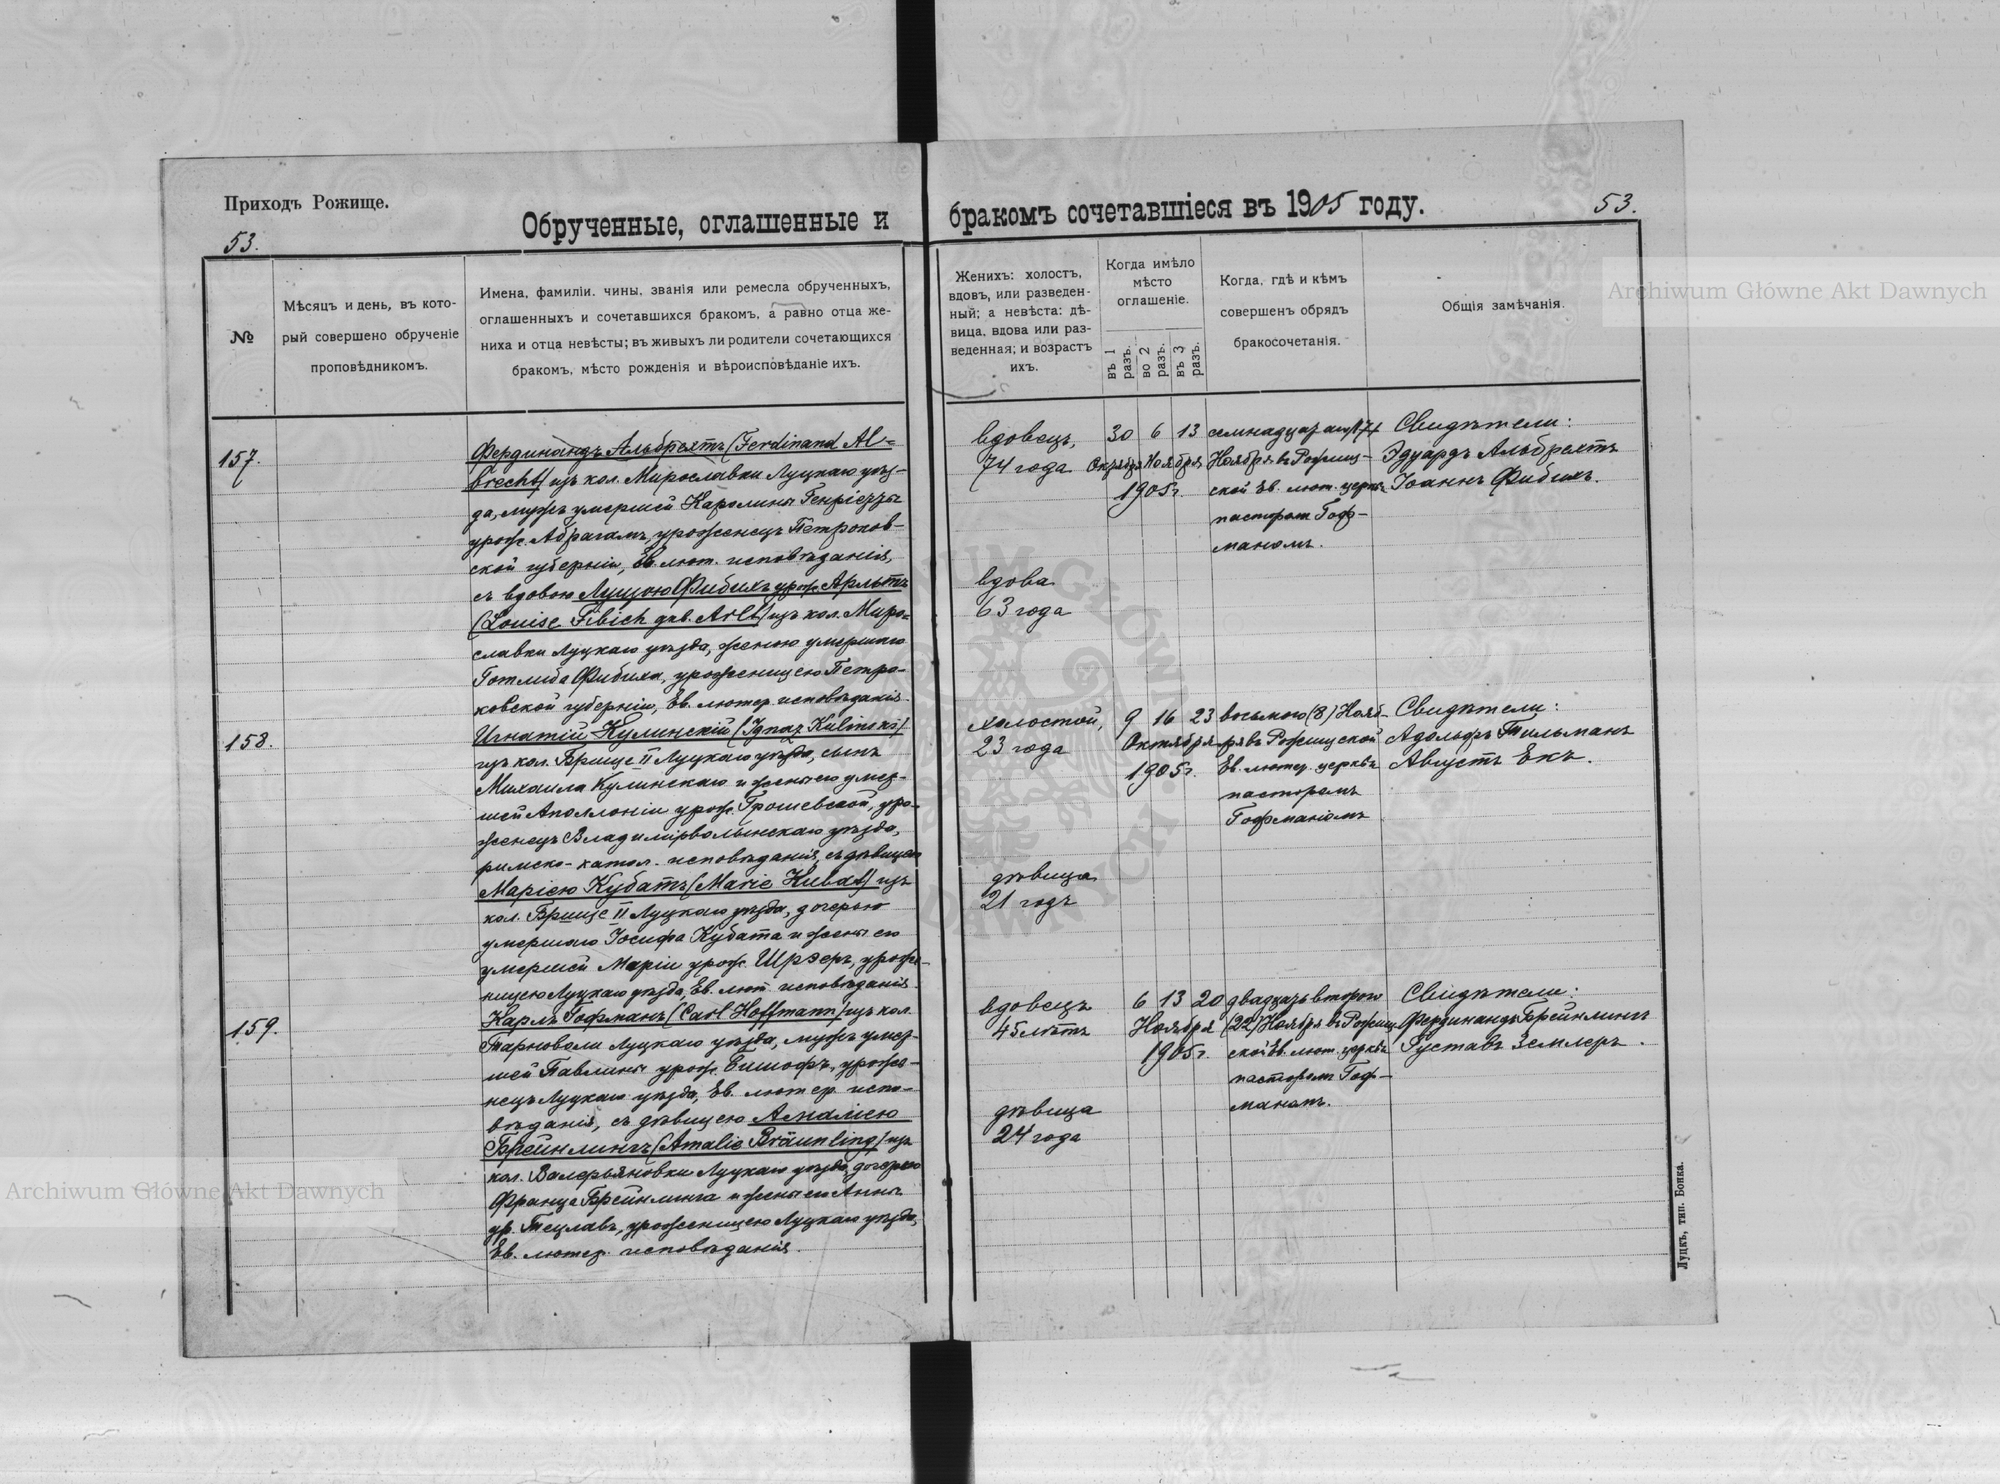 Приходъ Рожище.
53.
Обрученные, оглашенные и
бракомъ сочетавшіеся въ 1905 году.
53.
№
Мѣсяцъ и день, въ кото-
рый совершено обрученіе
проповѣдникомъ.
Имена, фамиліи. чины, званія или ремесла обрученныхъ,
оглашенныхъ и сочетавшихся бракомъ, а равно отца же-
ниха и отца невѣсты; въ живыхъ ли родители сочетающихся
бракомъ, мѣсто рожденія и вѣроисповѣданіе ихъ.
Женихъ: холостъ,
вдовъ, или разведен-
ный; а невѣста: дѣ-
вица, вдова или раз-
веденная; и возрастъ
ихъ.
Когда имѣло
мѣсто
оглашеніе.
въ 1 разъ.
во 2 разъ.
въ 3 разъ.
Когда, гдѣ и кѣмъ
совершенъ обрядъ
бракосочетанія.
Общія замѣчанія.
157.
Фердинандъ Альбрехтъ (Ferdinand Al-
brecht) изъ кол. Мирославки Луцкаго уѣз-
да, мужъ умершей Каролины Генріетты
урож. Абрагамъ, уроженецъ Петроков-
ской губерніи, Ев. лют. исповѣданія,
съ вдовою Луизою Фибихъ урож. Арльтъ
(Louise Fibich geb. Arlt) изъ кол. Миро-
славки Луцкаго уѣзда, женою умершаго
Готлиба Фибиха, уроженицею Петро-
ковской губерніи, Ев. лютер. исповѣданія.
вдовецъ,
74 года
вдова
63 года
30 6 13
Октября Ноября
1905 г.
семнадцатаго/17/
Ноября въ Рожищ-
ской Ев. лют. церкви
пасторомъ Гоф-
маномъ.
Свидѣтели:
Эдуардъ Альбрехтъ
Іоаннъ Фибихъ.
158.
Игнатій Кулинскій (Ignaz Kulinski)
изъ кол. Брище II Луцкаго уѣзда, сынъ
Михаила Кулинскаго и жены его умер-
шей Аполлоніи урож. Грошевской, уро-
женецъ Владимірволынскаго уѣзда,
римско-катол. исповѣданія, съ дѣвицею
Маріею Кубатъ (Marie Kubat) изъ
кол. Брище II Луцкаго уѣзда, дочерью
умершаго Іосифа Кубата и жены его
умершей Маріи урож. Шрэеръ, уроже-
ницею Луцкаго уѣзда, Ев. лют. исповѣданія.
холостой,
23 года
дѣвица
21 годъ
9 16 23
Октября
1905 г.
восьмого (8) Нояб-
ря въ Рожищской
Ев. лютер. церкви
пасторомъ
Гофманомъ
Свидѣтели:
Адольфъ Тильманъ
Августъ Екъ.
159.
Карлъ Гофманъ (Carl Hoffmann) изъ кол.
Тарноволи Луцкаго уѣзда, мужъ умер-
шей Павлины урож. Бишофъ, уроже-
нецъ Луцкаго уѣзда, Ев. лютер. испо-
вѣданія, съ дѣвицею Амаліею
Брейнлингъ (Amalie Bräunling) изъ
кол. Валерьяновки Луцкаго уѣзда, дочерью
Франца Брейнлинга и жены его Анны
ур. Тецлавъ, уроженицею Луцкаго уѣзда,
Ев. лютер. исповѣданія.
вдовецъ
45 лѣтъ
дѣвица
24 года
6 13 20
Ноября
1905 г.
двадцать второго
(22) Ноября въ Рожищ-
ской Ев. лют. церкви
пасторомъ Гоф-
маномъ.
Свидѣтели:
Фердинандъ Брейнлингъ
ГуставъЗемлеръ.
Луцкъ, тип. Бонка.
Archiwum Główne Akt Dawnych
Archiwum Główne Akt Dawnych